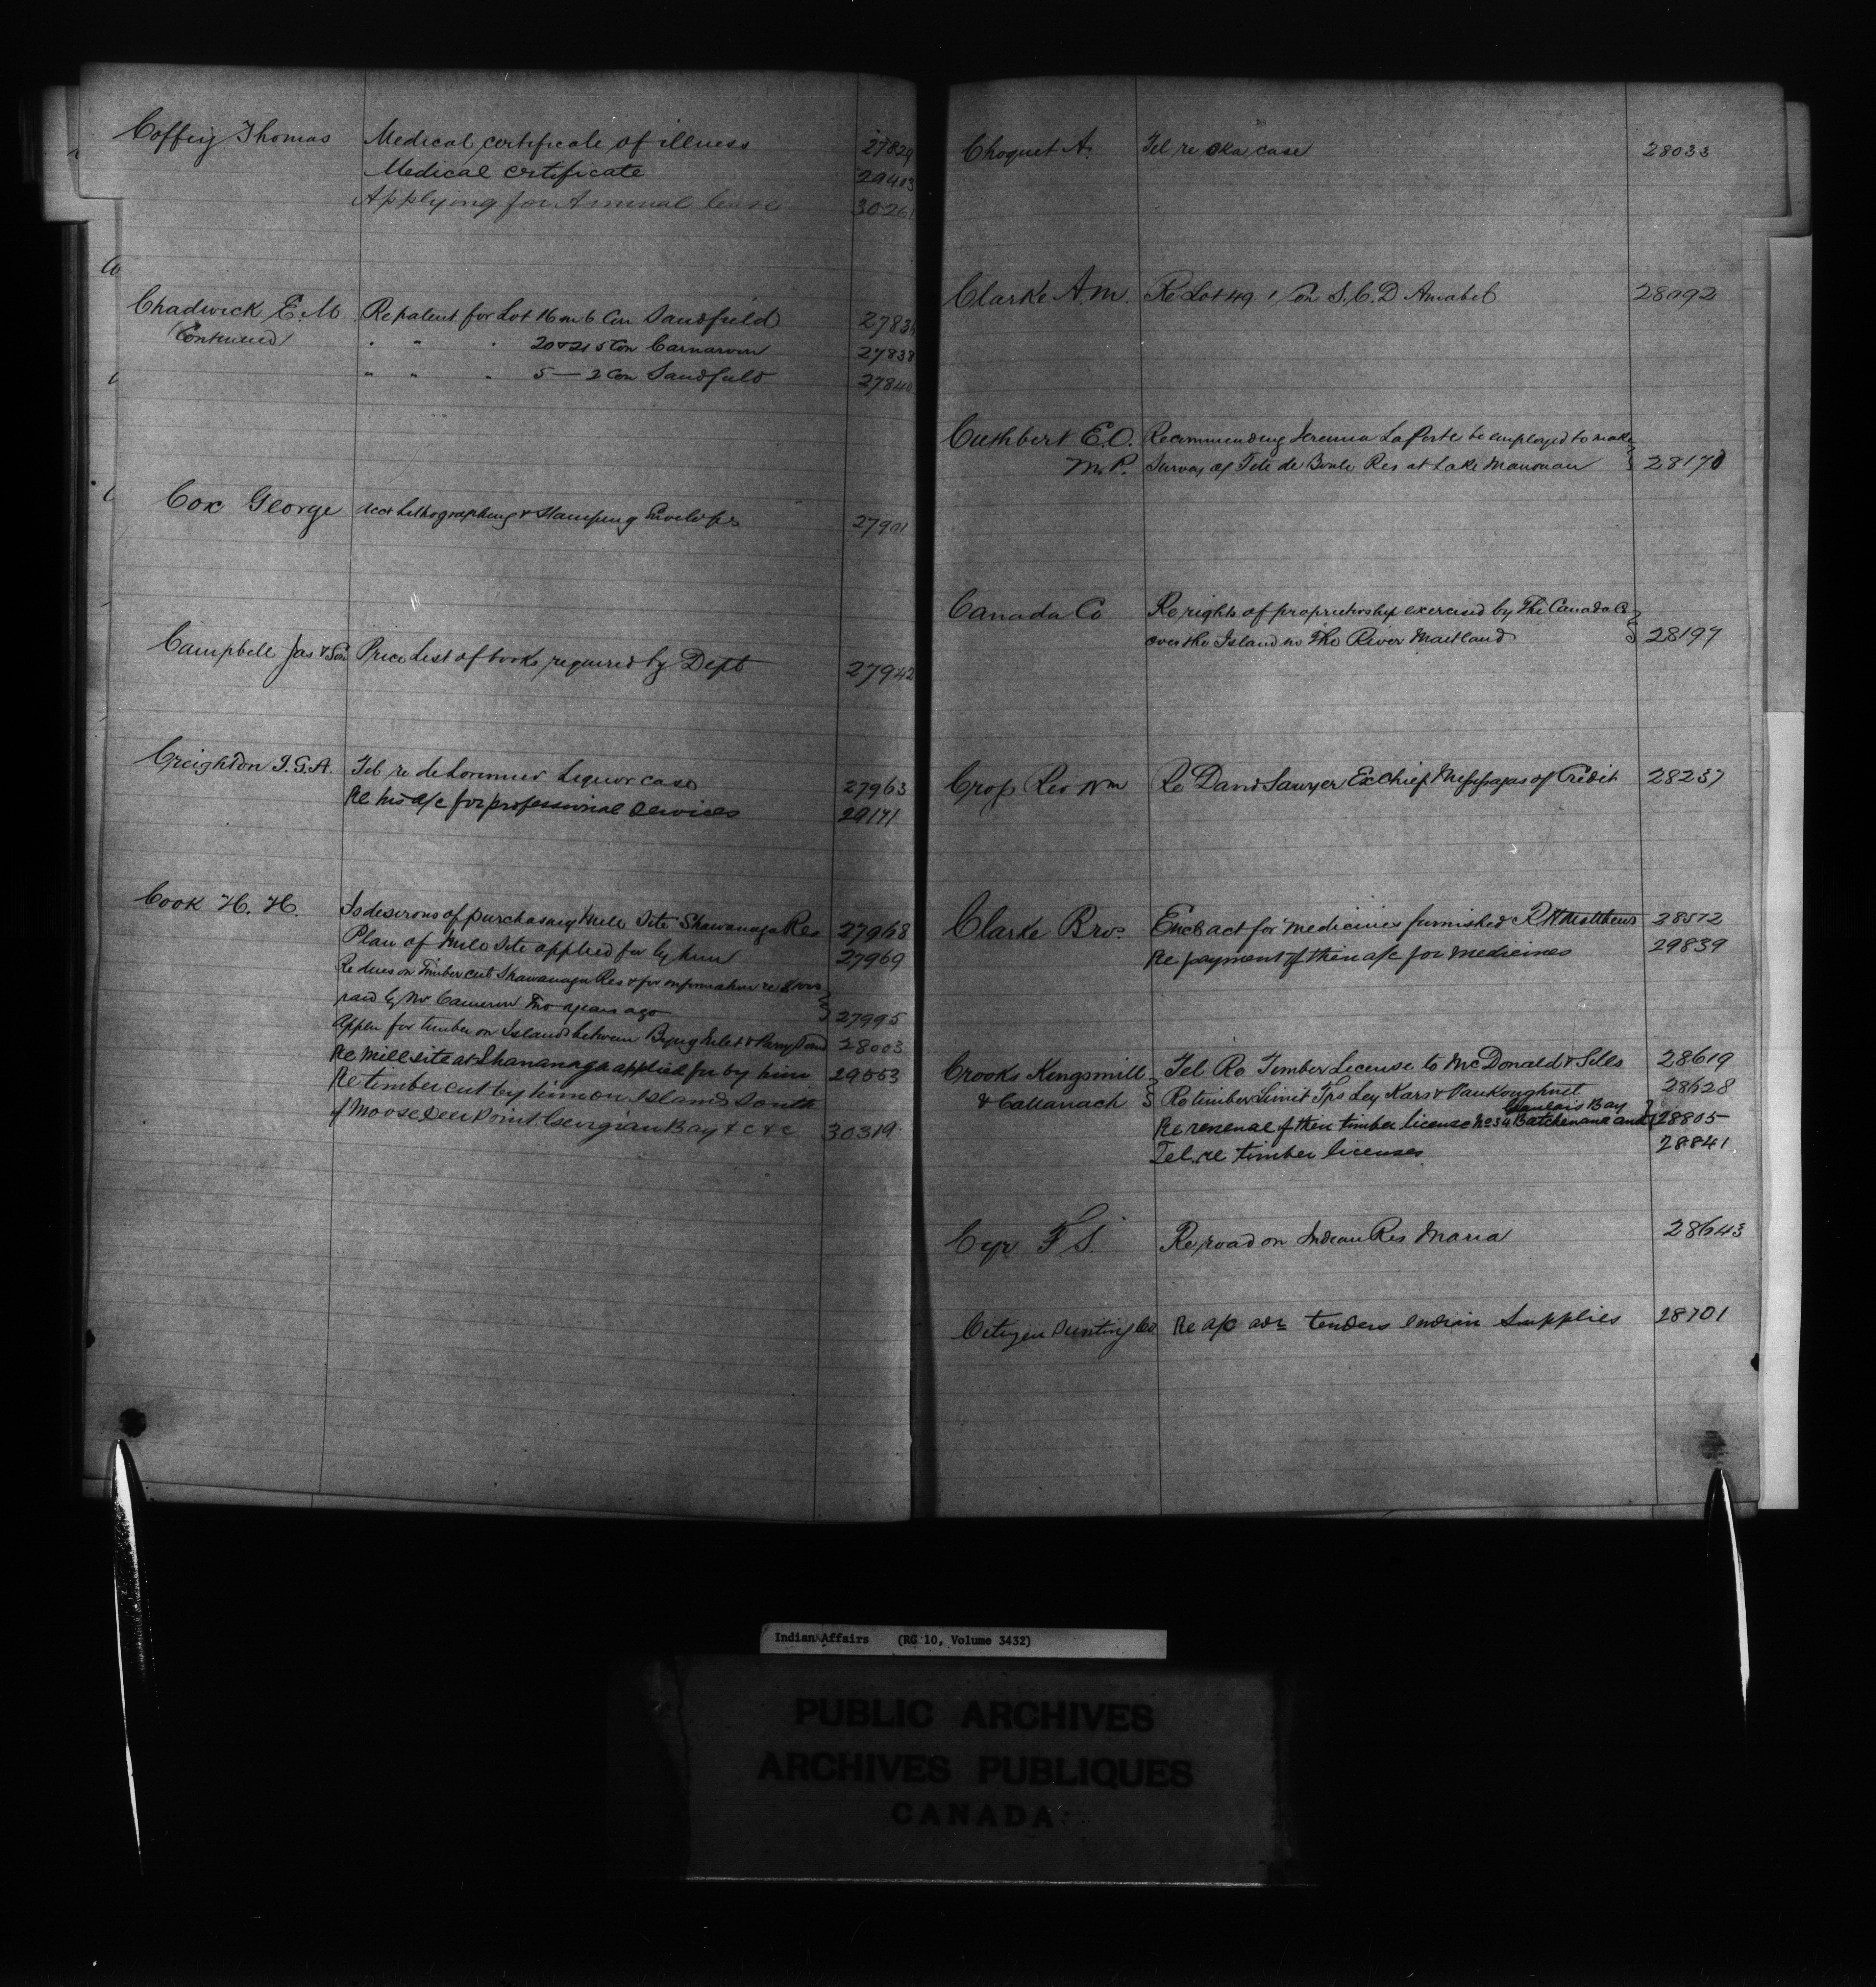 Coffey Thomas Medical certificate of illness 27829
Medical certificate 29403
Applying for Annual leave 30261
Chadwick E. M Re patent for Lot 16 on 6 Con Sandfield 2783
(Continued) " " " 20 & 21 5 Con Carnarvon 27838
" " " 5 — 2 Con Sandfield 27840
Cox George acct Lithographing & Stamping Envelopes 27901
Campbell Jas & Son Price List of books required by Dept 27942
Creighton J.G.A. Tel re de Lorimier Liquor case 27963
Re his a/c for professional services 29171
Cook H. H. Is desirous of purchasing Mill Site Shawanaga Res 27968
Plan of Mill Site applied for by him 27969
Re dues on Timber cut Shawanaga Res & for information re
paid by Mr Cameron two years ago 27995
Appln for timber on Islands between Byng Inlet & Parry Sound 28003
Re Mill site at Shananaga applied for by him 29553
Re timber cut by him on Islands South
of Moose Deer Point Georgian Bay & c & c 30319
Choquet A. Tel re Oka case 28033
Clarke A.M. Re Lot 49 1 Con S.C.D Amabel 28092
Cuthbert E.O. Recommending Laporte be employed to make
M.P. Survey of Tete de Boule Res at Lake Manouan 28170
Canada Co Re rights of proprietorship exercised by The Canada Co
over the Island in The River Maitland 28197
Cross Rev Wm Re David Sawyer Ex Chief Mississagas of Credit 28237
Clarke Bros. Encls act for Medicines furnished R H Matthews 28572
Re payment of their a/c for medicines 29839
Crooks Kingsmill Tel Re Timber License to McDonald & Sills 28619
& Cattanach Re timber Limit Tps Ley Kars & Vankoughnet 28628
Goulais Bay
Re renewal of their timber license No 34 Batchewana and 28805
Tel. re timber licenses 28841
Cyr F S. Re road on Indian Res Maria 28643
Citizen Printing Co Re a/c adv tenders Indian Supplies 28701
Indian Affairs (RG 10, Volume 3432)
PUBLIC ARCHIVES
ARCHIVES PUBLIQUES
CANADA